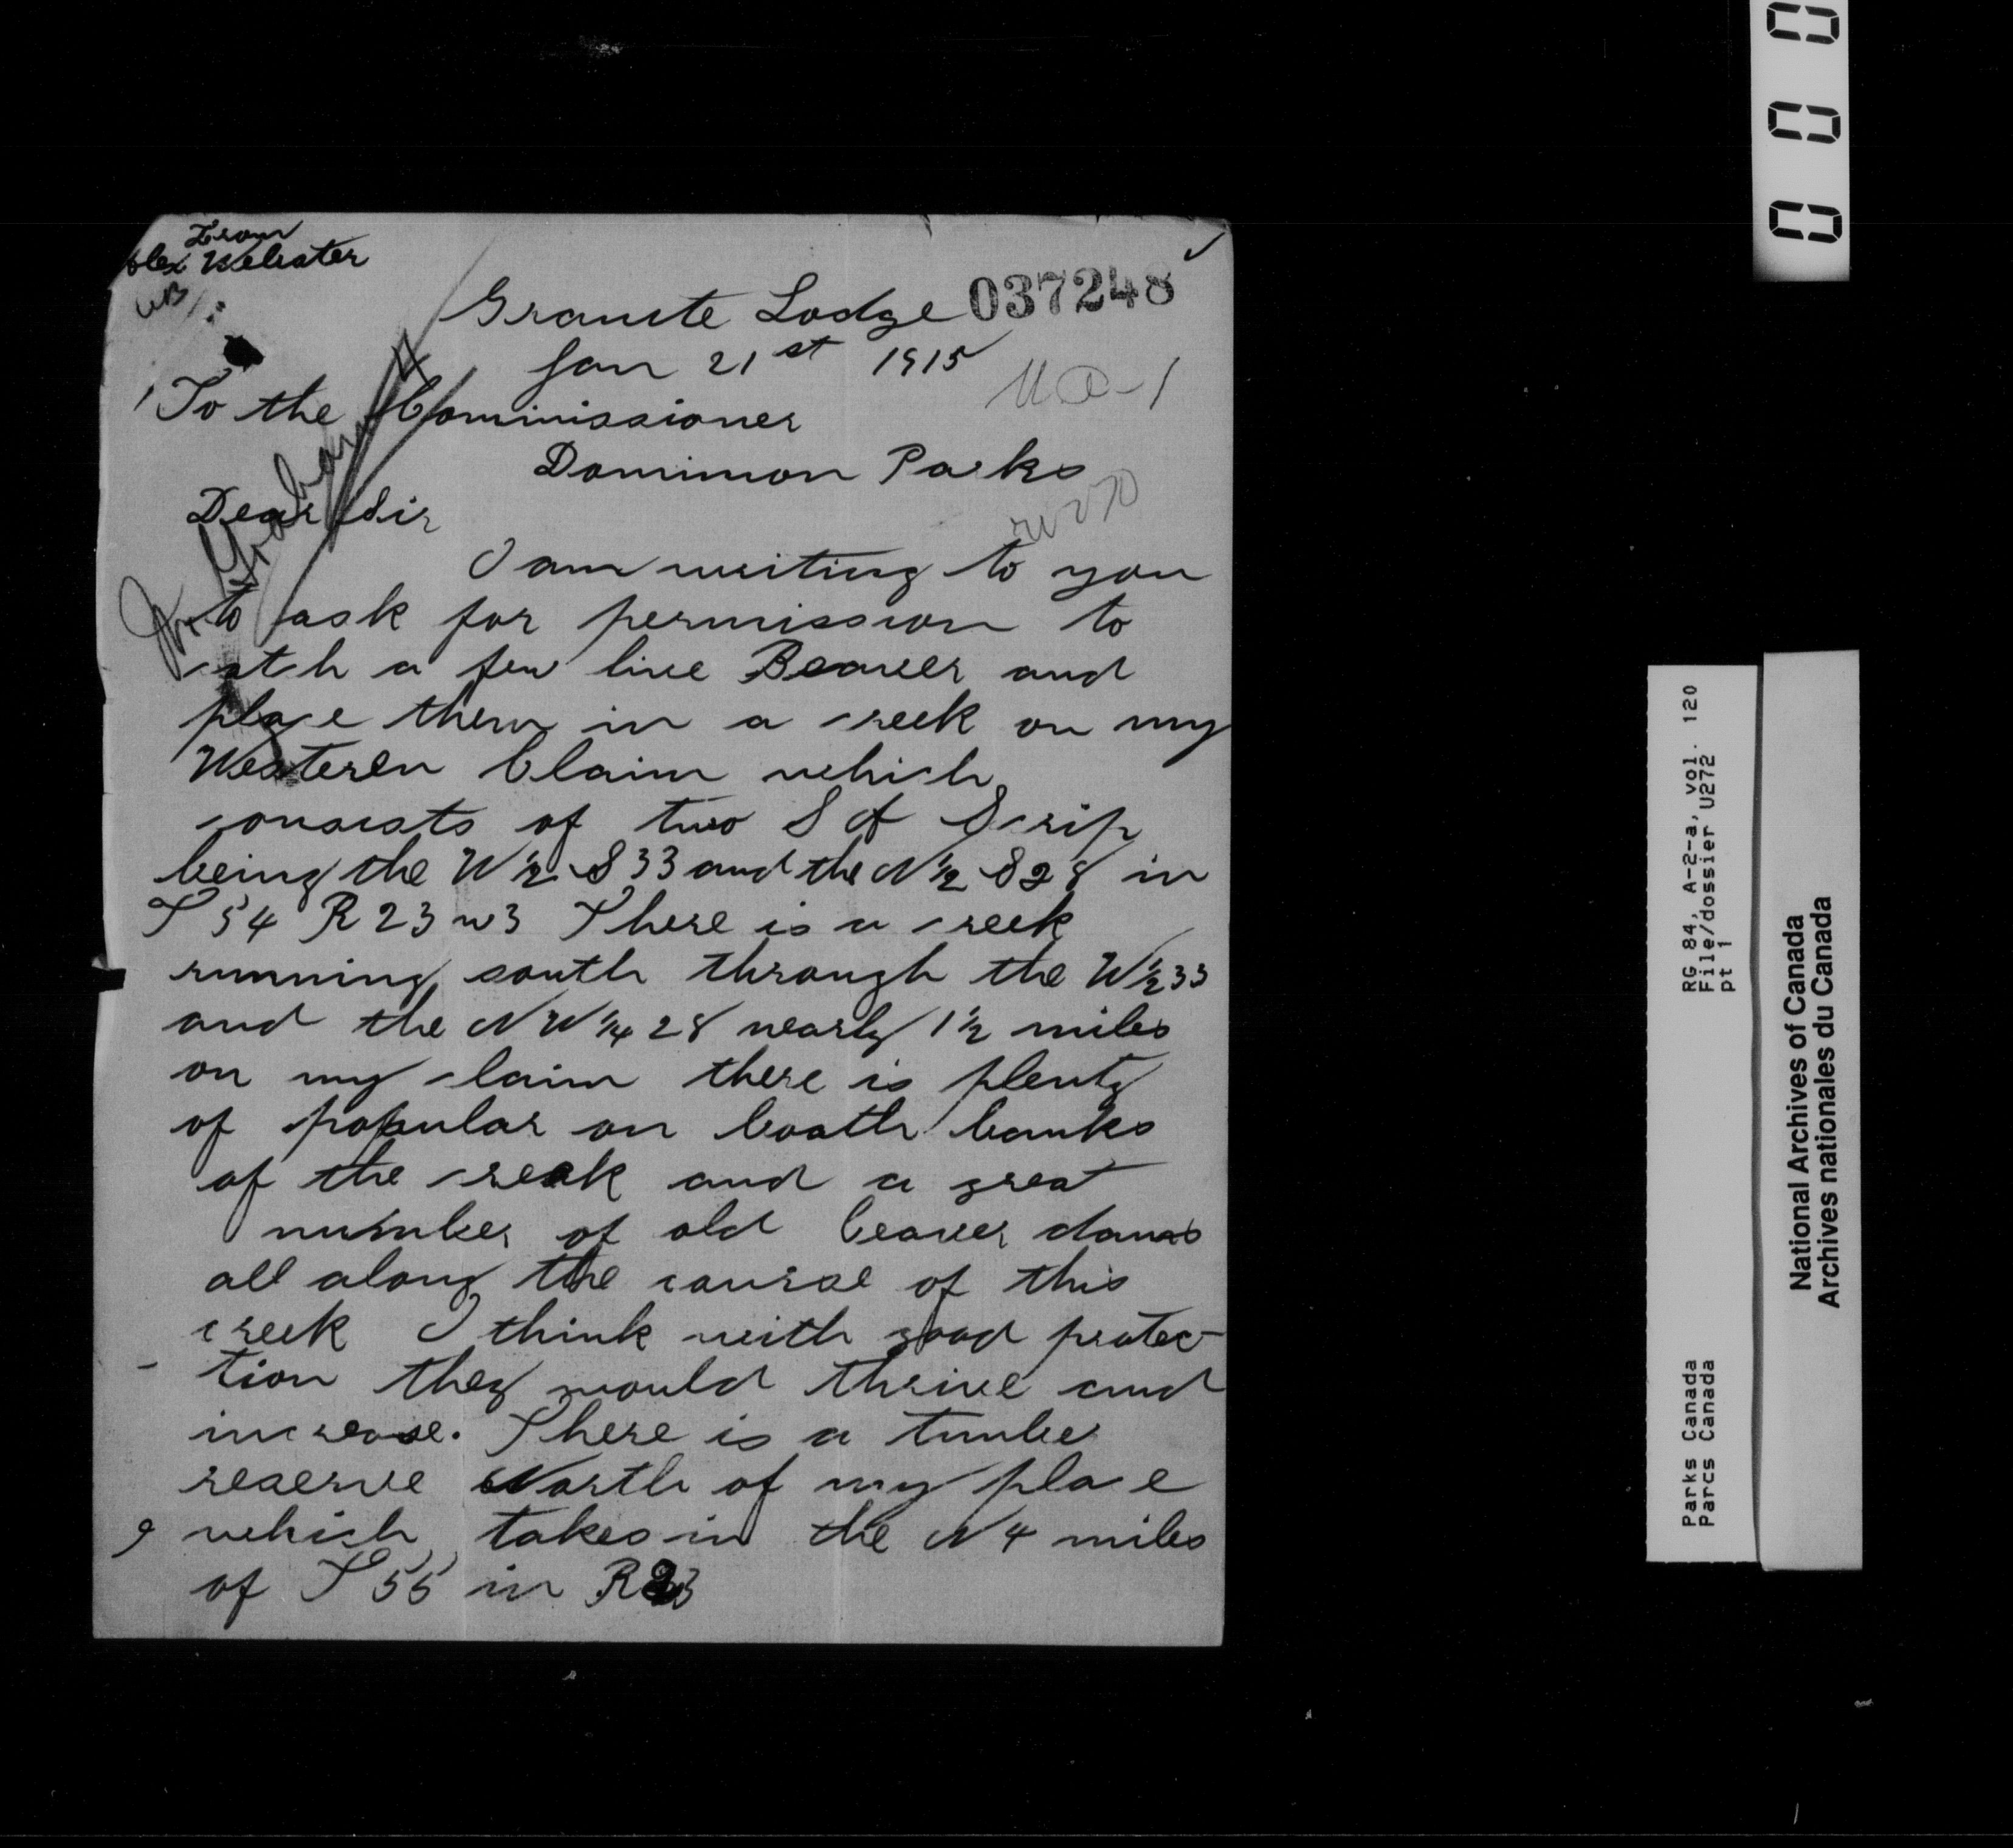 From
Alex Webster
037248
Granite Lodge
Jan 21st 1915
To the Commissioner
Dominion Parks
Dear Sir
I am writing to you
to ask for permission to
catch a few live Beaver and
place them in a creek on my
Westeren Claim which
consists of two S A Scrip
being the W 1/2 S 33 and the N 1/2 S 28 in
T 54 R 23 w3 There is a creek
running south through the W 1/2 33
and the NW 1/4 28 nearly 1 1/2 miles
on my claim there is plenty
of popular on boath banks
of the creek and a great
number of old beaver dams
all along the course of this
creek I think with good protec-
tion they would thrive and
increase. There is a timber
reserve North of my place
which takes in the N 4 miles
of T 55 in R 23
Mr Graham
0 0 0
RG 84, A-2-a, vol. 120
File/dossier U272
pt 1
Parks Canada
Parcs Canada
National Archives of Canada
Archives nationales du Canada